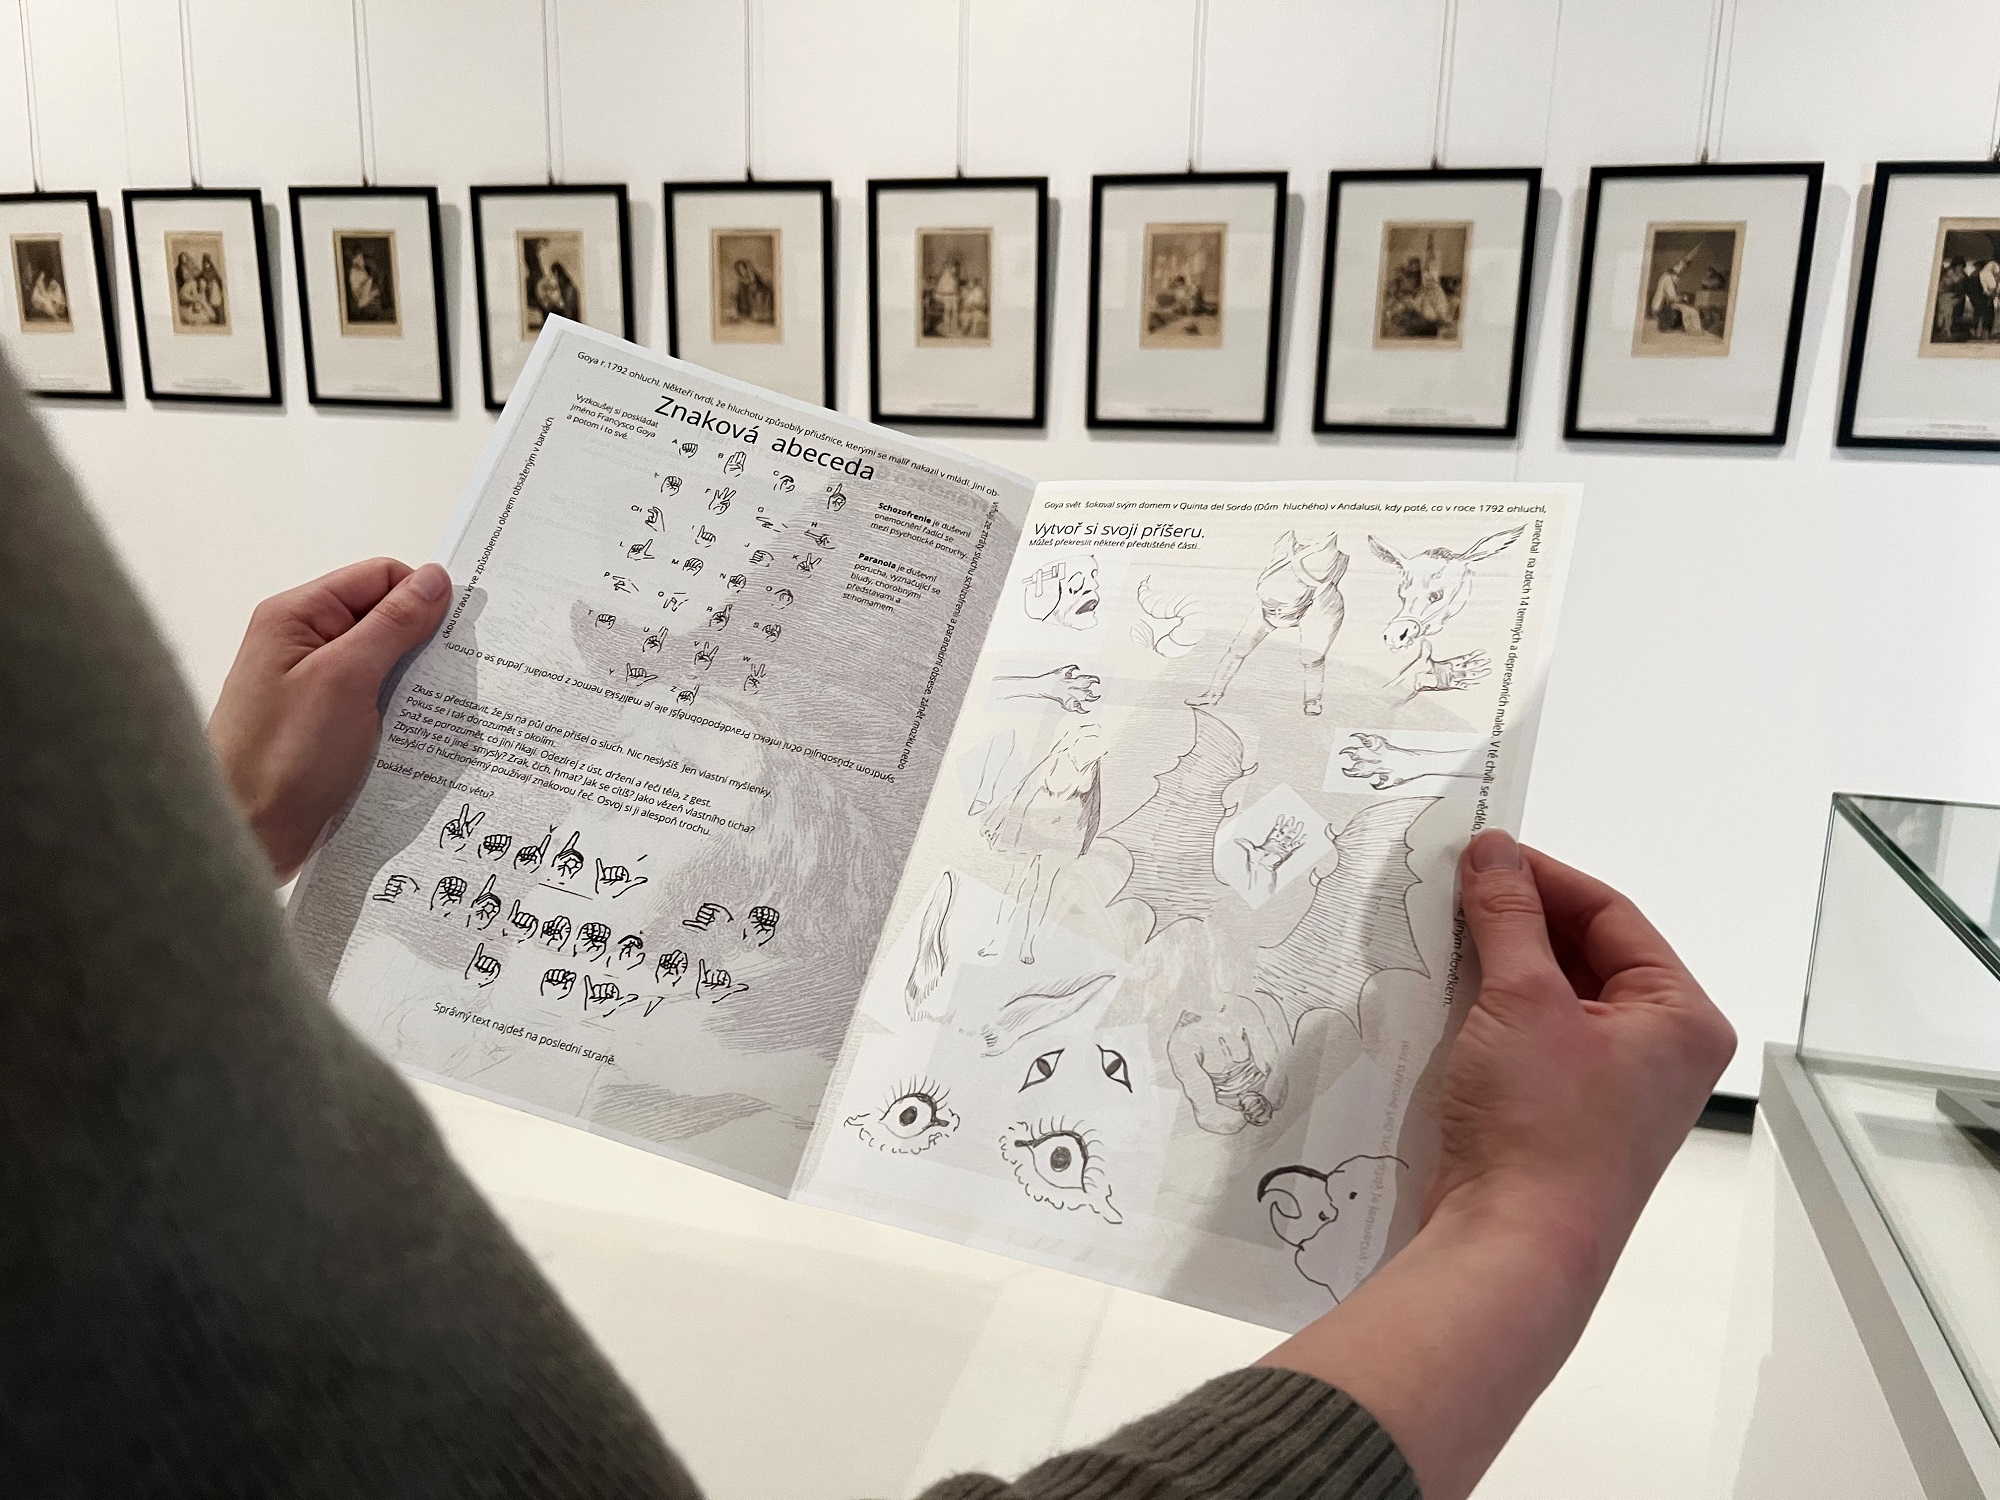 Goya r.1792 ohluchl. Někteří tvrdí, že hluchotu způsobily příušnice, kterými se malíř nakazil v mládí. Jiní ob-
viňují ze ztráty sluchu schizofrenii a paranoidní obsese, zánět mozku nebo
syndrom způsobující oční infekci. Pravděpodobnější ale je malířská nemoc z povolání. Jedná se o chroni-
ckou otravu krve způsobenou olovem obsaženým v barvách.
Znaková abeceda
Vyzkoušej si poskládat
jméno Francysco Goya
a potom i to své.
A
B
C
D
E
F
G
H
CH
I
J
K
L
M
N
O
P
Q
R
S
T
U
V
W
Y
Z
Schozofrenie je duševní
onemocnění řadící se
mezi psychotické poruchy.
Paranoia je duševní
porucha, vyznačující se
bludy, chorobnými
představami a
stihomamem.
Zkus si představit, že jsi na půl dne přišel o sluch. Nic neslyšíš. Jen vlastní myšlenky.
Pokus se i tak dorozumět s okolím.
Snaž se porozumět, co jiní říkají. Odezírej z úst, držení a řeči těla, z gest.
Zbystřily se ti jiné smysly? Zrak, čich, hmat? Jak se cítíš? Jako vězeň vlastního ticha?
Neslyšící či hluchoněmý používají znakovou řeč. Osvoj si ji alespoň trochu.
Dokážeš přeložit tuto větu?
Správný text najdeš na poslední straně.
Goya svět šokoval svým domem v Quinta del Sordo (Dům hluchého) v Andalusii, kdy poté, co v roce 1792 ohluchl,
zanechal na zdech 14 temných a depresivních maleb. V té chvíli se vědělo,
jiným člověkem.
Vytvoř si svoji příšeru.
Můžeš překreslit některé předtištěné části.